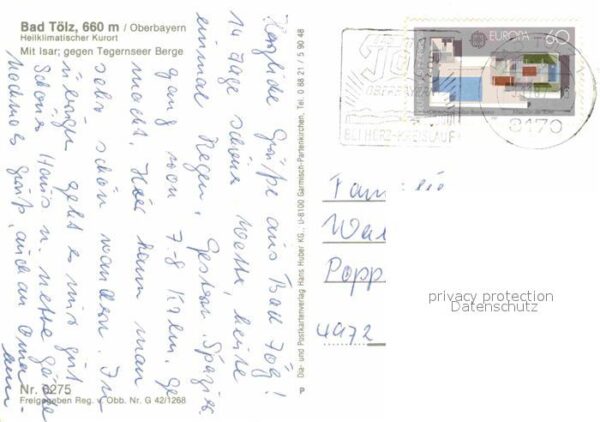 Bad Tölz, 660 m / Oberbayern
Heilklimatischer Kurort
Mit Isar; gegen Tegernseer Berge
Herzliche Grüße aus Bad Tölz!
14 Tage schönes Wetter, keine
einmal Regen. Gestern Spazier
gang von 7-8 Klm. ge
macht. Hier kann man
sehr schön wandern. Im
übrigen geht es mir gut
Schönes Haus u. nette Gäste
Nochmals Grüß, auch an Oma
Nr. 6275
Freigegeben Reg. v. Obb. Nr. G 42/1268
Dia- und Postkartenverlag Hans Huber KG., U-8100 Garmisch-Partenkirchen, Tel. 0 88 21 / 5 90 48
P
EUROPA 60
OBERBAYERN
BEI HERZ-KREISLAUF
8170
Fam
Wa
Popp
4972
privacy protection
Datenschutz